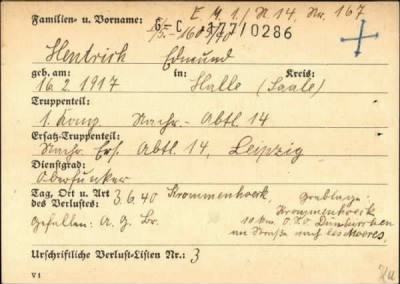 E. M. 1./ N. 14, Nr. 167
Familien- u. Vorname: G-C 177/0286
Hentrich Edmund
geb. am: in: Kreis:
16. 2. 1917 Halle (Saale)
Truppenteil:
1. Komp. Nachr.- Abtl. 14
Ersatz-Truppenteil:
Nachr. Ers. Abtl. 14, Leipzig
Dienstgrad:
Oberfunker
Tag, Ort u. Art des Verlustes: 3. 6. 40 Krommenhoek, Grablage:
Krommenhoek
Gefallen: A. G. Br. 10 km O.S.O. Dünkirchen
an Straße nach les Moeres.
Urschriftliche Verlust-Listen Nr.: 3
V 1